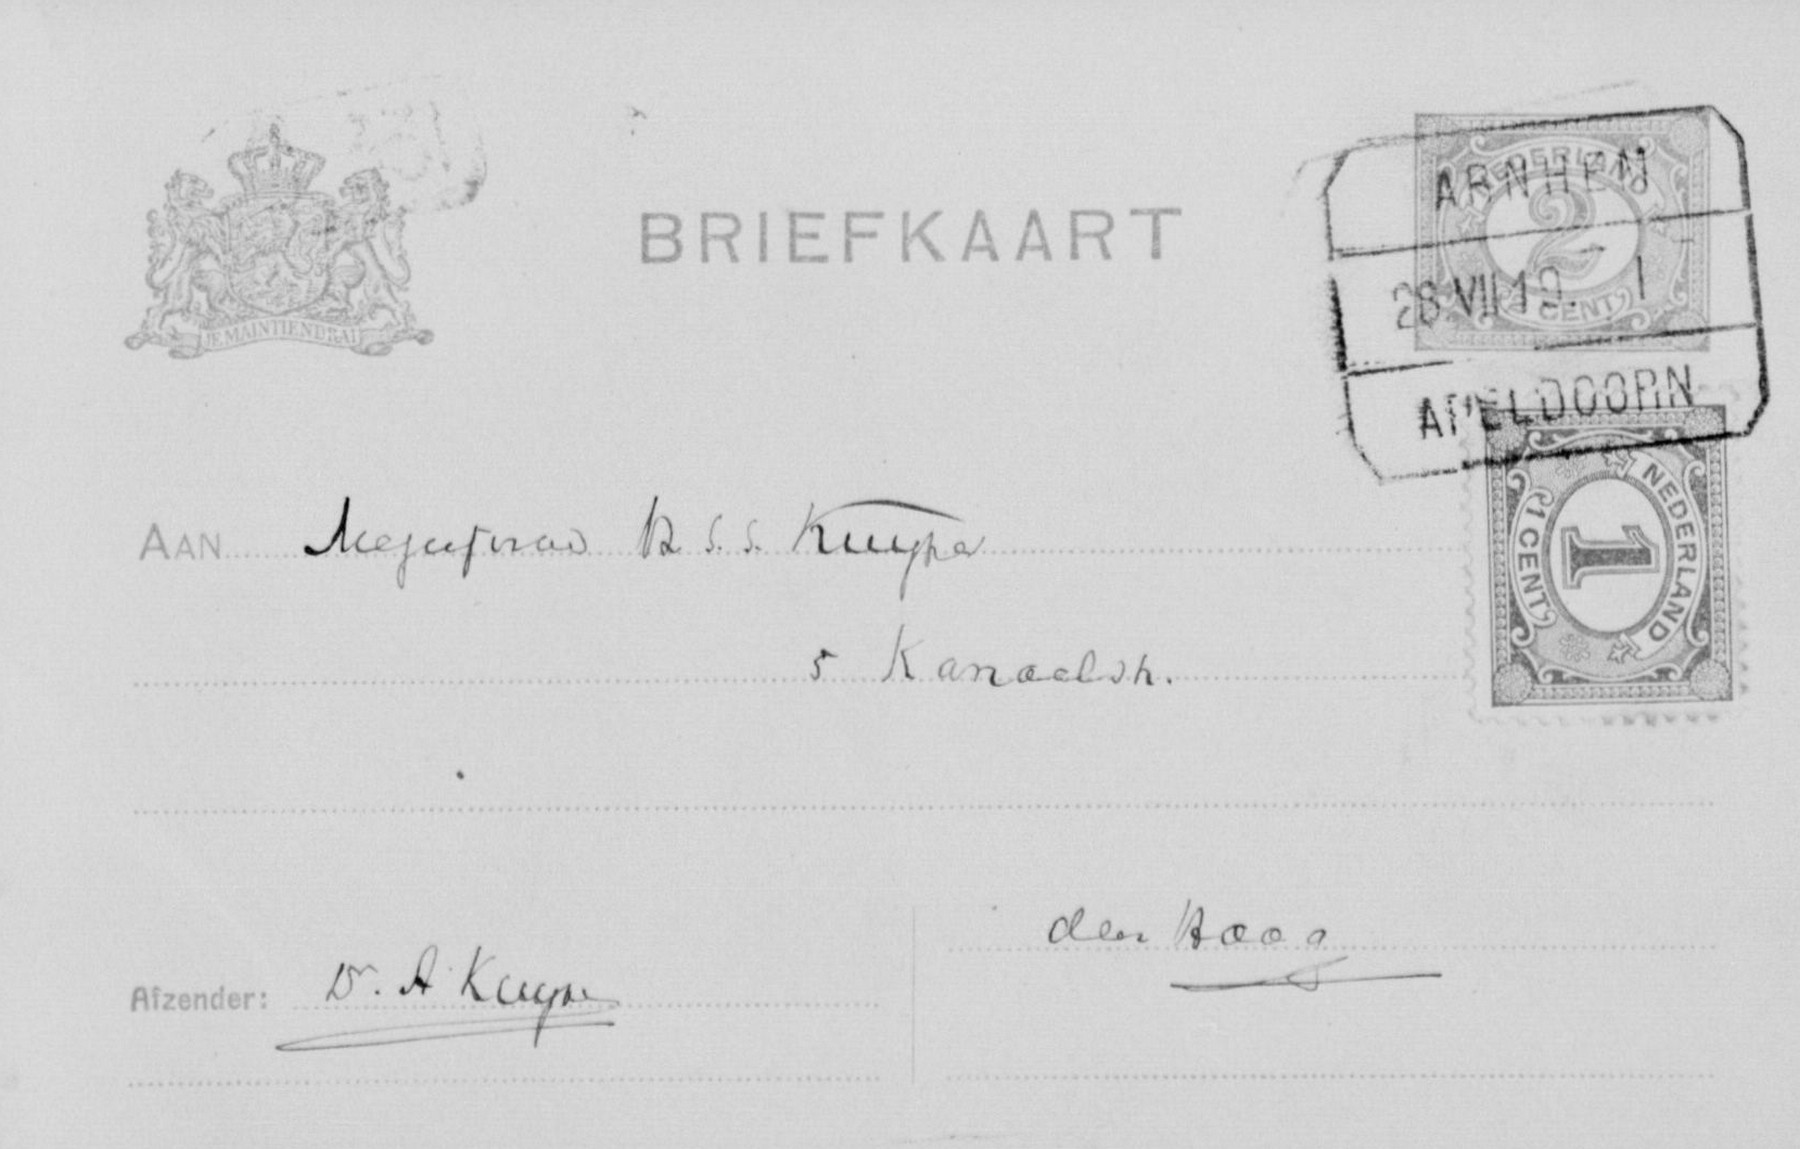 JE MAINTIENDRAI
BRIEFKAART
NEDERLAND
2
CENT
ARNHEM
28 VII 19 1
APELDOORN
NEDERLAND
1
1 CENT
AAN Mejufvrouw H. S. S. Kuyper
5 Kanaalstr.
den Haag
Afzender: Dr. A Kuyper